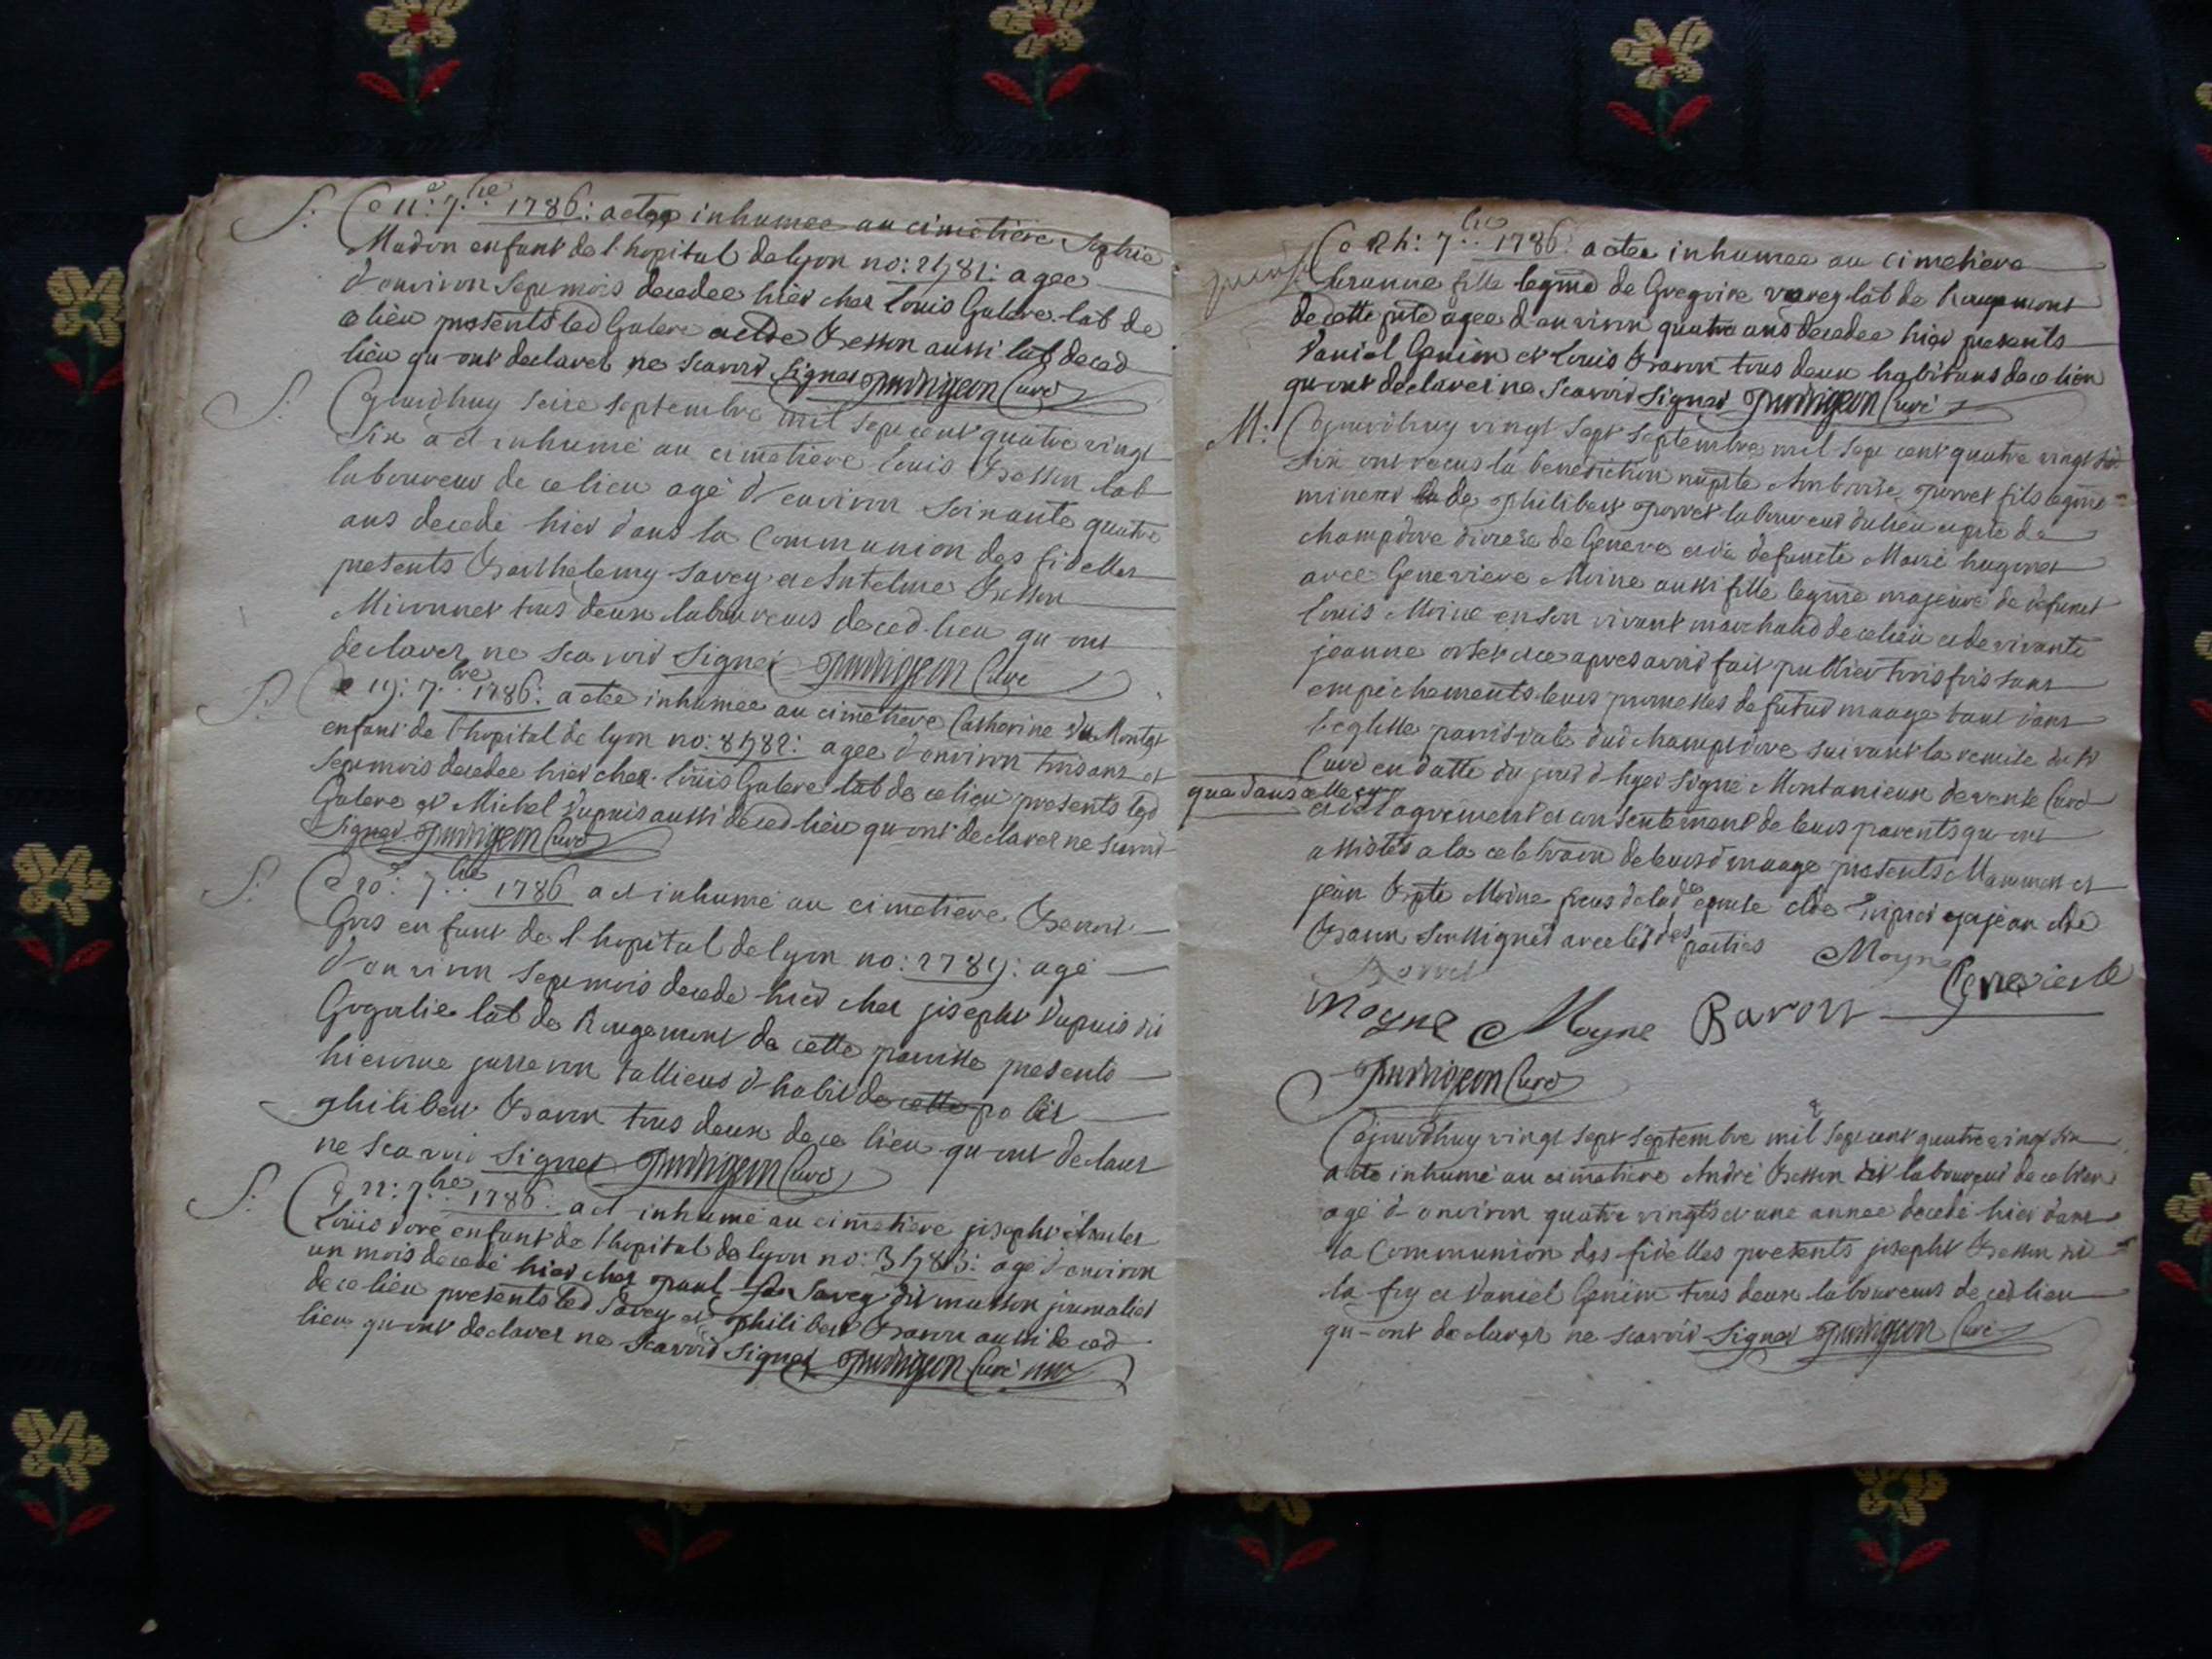 S. Ce 11e 7.bre 1786: a etee inhumee au cimetiere Sophie
Madon enfant de l-hopital de lyon no: agee
d'environ sept mois decedee hièr chez louis Galere lab de
ce lieu presents led Galere Besson aussi lab de ced
lièu qu-ont declarez ne scavoir signer Curé
S. Cejourdhuy seize septembre mil sept cent quatre vingt
six a et inhumé au cimetiere louis Besson lab
laboureur de ce lieu agé d'environ soixante quatre
ans decedé hier dans la Communion des fidelles
presents Barthelemy Savey et Antelme Besson
Mironnet tous deux laboureurs de ced. lieu qu-ont
declarer ne scavoir signer Curé
S. Ce 19: 7.bre 1786: a etee inhumée au cimetiere Catherine
enfant de l'hopital de lyon no: agee d'environ trois ans et
sept mois decedee hier chez loüis Galere lab de ce lieu presents led
Galere et Michel Dupuis aussi de ced lièu qu-ont declarer ne scavoir
signer Curé
S. Ce 20: 7.bre 1786 a et inhumé au cimetiere Benoit
Gros enfant de l-hopital de lyon no: agé
d-environ sept mois decede hièr chez joseph Dupuis dit
lab de Rougemont de cette paroisse presents
tallieur d-habit de cette pa
philibert Baron tous deux de ce lieu qu-ont declarer
ne scavoir signer Curé
S. Ce 22: 7.bre 1786: a et inhumé au cimetiere joseph
loüis enfant de l'hopital de lyon no: agé d'environ
un mois decedé hier chez paul Savey dit musson journalier
de ce lièu presents led Savey et philibert Baron aussi de ced
lieu qu-ont declarer ne scavoir signer Curé
Ce 7.bre 1786: a etee inhumee au cimetiere
fille legme de Gregoire lab de Rougemont
de cette psse agee d'environ quatre ans decedee hier presents
Daniel Genin et louis Baron tous deux habitans de ce lieu
qu-ont declarer ne scavoir signer Curé
M: Cejourdhuy vingt sept septembre mil sept cent quatre vingt six
six ont recus la benediction nuptle Ambroise fils legme
mineur de philibert laboureur du lieu et psse de
champdore diocèse de Geneve et de defuncte Marie hugonet
avec Genevieve Moine aussi fille legme majeure de defunct
louis Moine en son vivant marchand de ce lieu et de vivante
jeanne et ce apres avoir fait publier trois fois sans
empechements leurs promesses de futur maage tant dans
l'eglise paroissiale dud champdore suivant la remise du Sr
Curé en datte du jour d-hyer signé Montanieux Curé
que dans celle cy
et de l'agrement et consentement de leurs parents qu-ont
assistés a la celebraon de leurd maage presents Mammert et
jean Bpte Moine freres de lade epouse jean
Baron soussignés avec les des parties Moyne
Genevieve
Moyne Moyne Baron
Curé
Cejourdhuy vingt sept septembre mil sept cent quatre vingt six
a ete inhumé au cimetiere André Besson laboureur de ce lieu
agé d-environ quatre vingts et une année decedé hier dans
la Communion des fidelles presents joseph Besson dit
la foy et Daniel Genin tous deux laboureurs de ced lieu
qu-ont declarer ne scavoir signer Curé